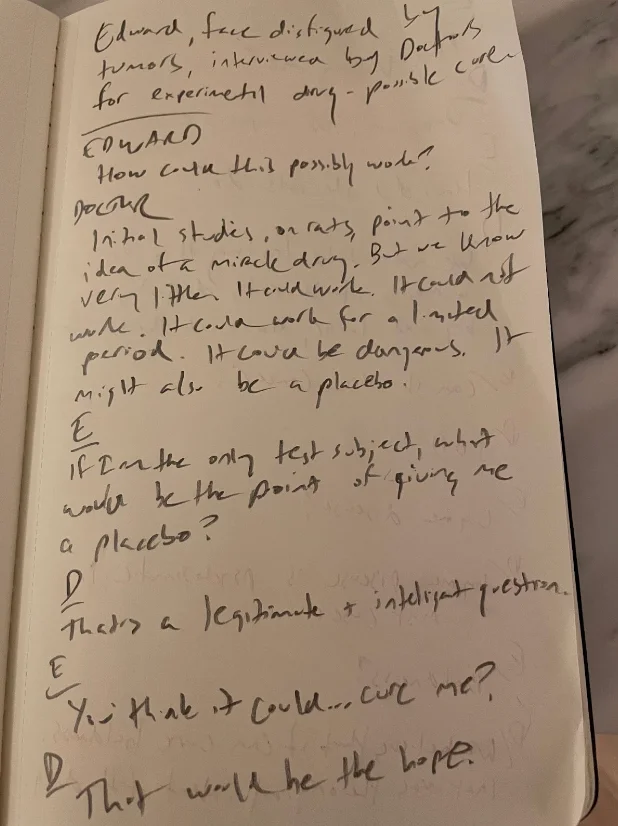 Edward, face disfigured by
tumors, interviewed by Doctors
for experimetl drug - possible cure.
EDWARD
How could this possibly work?
DOCTOR
Initial studies, on rats, point to the
idea of a miracle drug. But we know
very little. It could work. It could not
work. It could work for a limited
period. It could be dangerous. It
might also be a placebo.
E
If I'm the only test subject, what
would be the point of giving me
a placebo?
D
That's a legitimate + inteligat question.
E
You think it could... cure me?
D
That would be the hope.